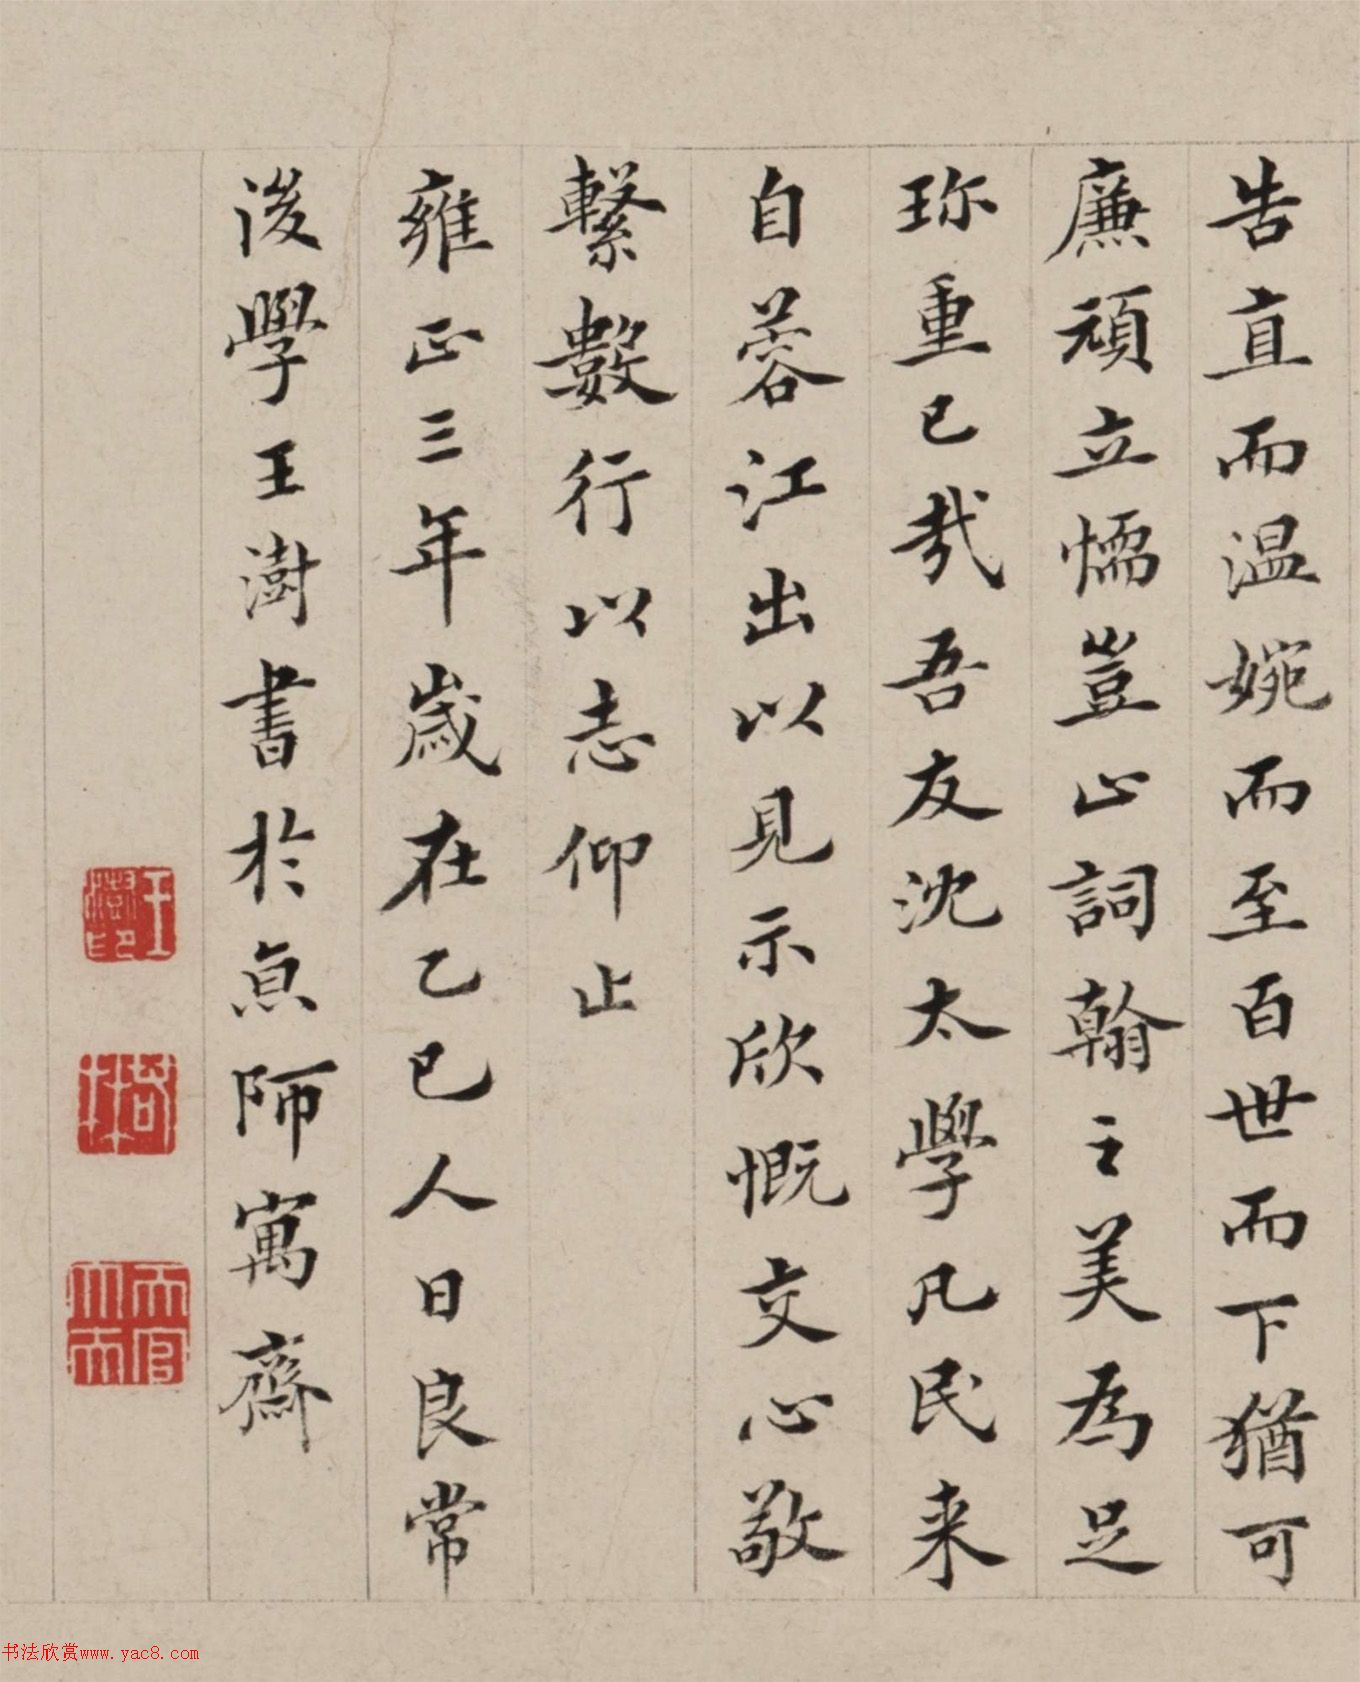 告直而温婉而至百世而下猶可
廉頑立懦豈止詞翰之美為足
珎重已哉吾友沈太學凡民来
自蓉江出以見示欣慨交心敬
繫數行以志仰止
雍正三年歲在乙巳人日良常
後學王澍書於奌師寓齋
王澍印
書法欣赏www.yac8.com